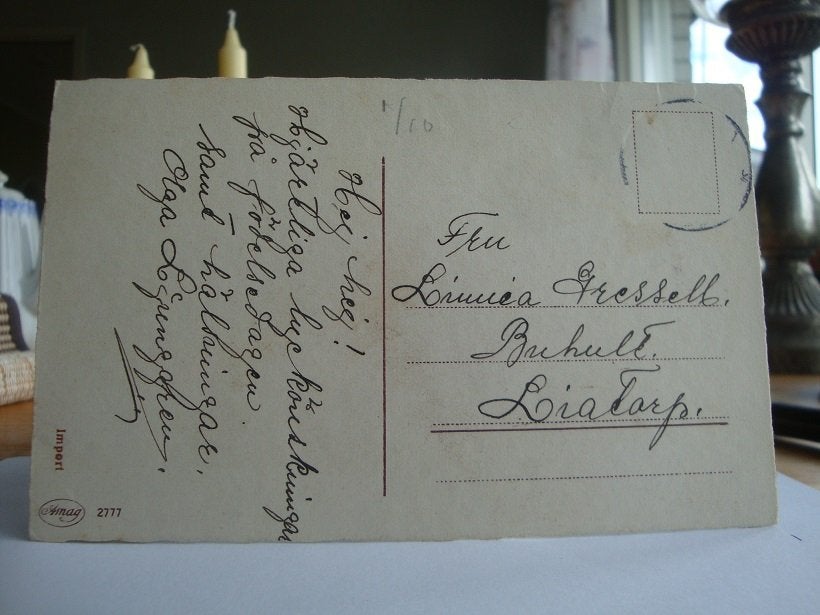 Hej, hej!
Hjärtliga lyckönskningar
på födelsedagen
samt hälsningar.
Olga Ljunggren.
1/10
Fru
Linnea Gressell.
Buhult.
Liatorp.
Import
Amag 2777